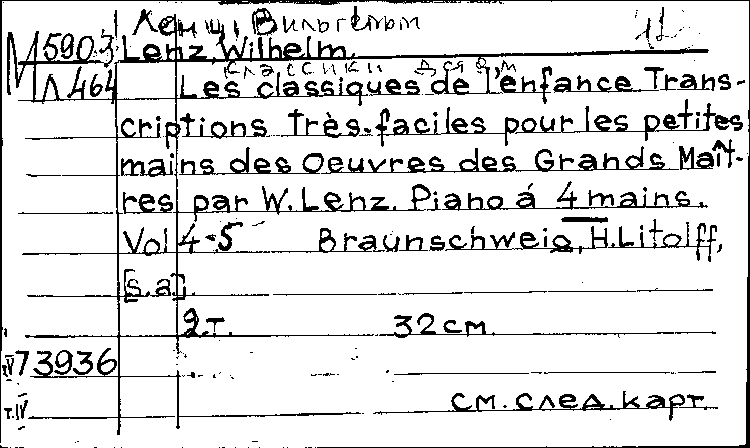 Ленц, Вильгельм
М5903 Lenz, Wilhelm.
классики для
Л464 Les classiques de l'enfance Trans-
criptions Très-faciles pour les petites
mains des Oeuvres des Grands Maît-
res par W. Lenz. Piano á 4 mains.
Vol 4-5 Braunschweig, H. Litolff,
[s.a.].
2 т. 32 см.
73936
т.IV см. след. карт.